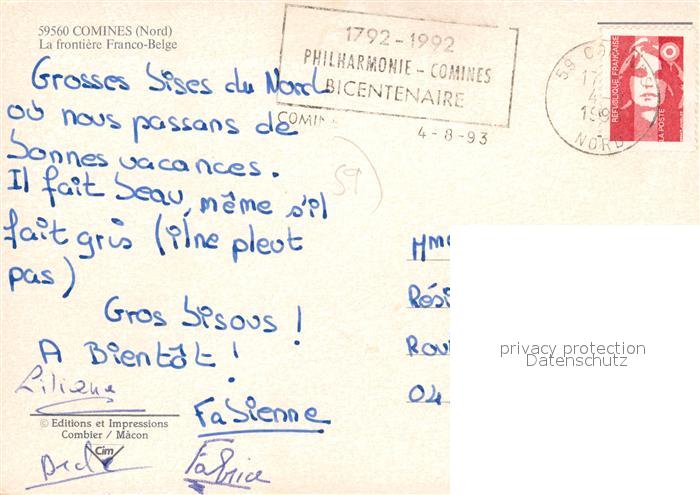 59560 COMINES (Nord)
La frontière Franco-Belge
1792-1992
PHILHARMONIE - COMINES
BICENTENAIRE
COMIN
4-8-93
59 CO
17
4
199
NORD
REPUBLIQUE FRANÇAISE
LA POSTE
Grosses bises du Nord
où nous passans de
bonnes vacances.
Il fait beau, même s'il
fait gris (il ne pleut
pas)
Gros bisous !
A Bientôt !
59
Liliane
Fabienne
Fabrice
© Editions et Impressions
Combier / Mâcon
Cim
Mme
Rési
Rou
04
privacy protection
Datenschutz